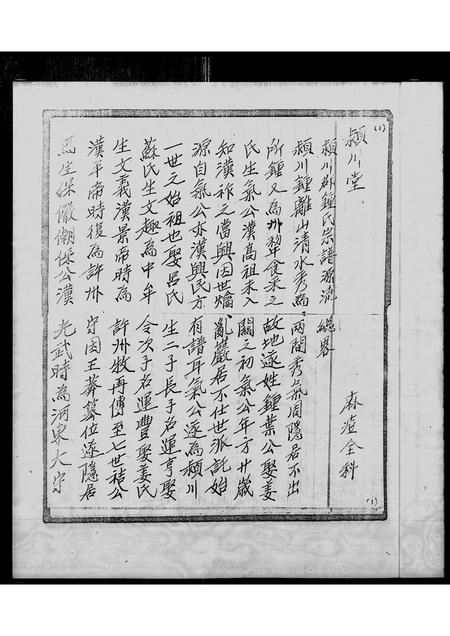 (1)
潁川堂
潁川郡鍾氏宗譜源流 總畧 麻澄全科
潁川鍾離山清水秀為兩間秀氣周隱居不出
所鍾又為州犂食采之故地遂姓鍾葉公娶姜
氏生氣公漢高祖未入關之初氣公年方廿歲
知漢祚之當興因世爚亂巖居不仕世派託始
源自氣公亦漢興民方有譜耳氣公遂為潁川
一世之始祖也娶呂氏生二子長子名運亨娶
蘇氏生文趣為中牟令次子名運豐娶姜氏
生文義漢景帝時為許州牧再傳至七世秸公
漢平帝時復為許州守因王莽篡位遂隱居
焉生緥儼𠍹傑公漢光武時為河東大守
(1)